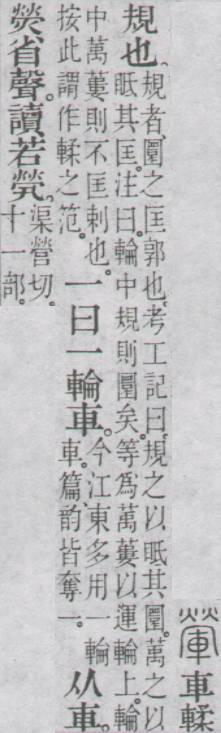 䡝 車輮
規也。規者、圜之匡郭也。考工記曰。規之以眡其圜。萬之以
眡其匡。注曰。輪中規則圜矣。等爲萬蔞以運輪上。輪
中萬蔞則不匡剌也。
按此謂作輮之笵。
一曰一輪車。今江東多用一輪
車。篇、韵皆奪一。
从車。
熒省聲。讀若煢。渠營切。
十一部。